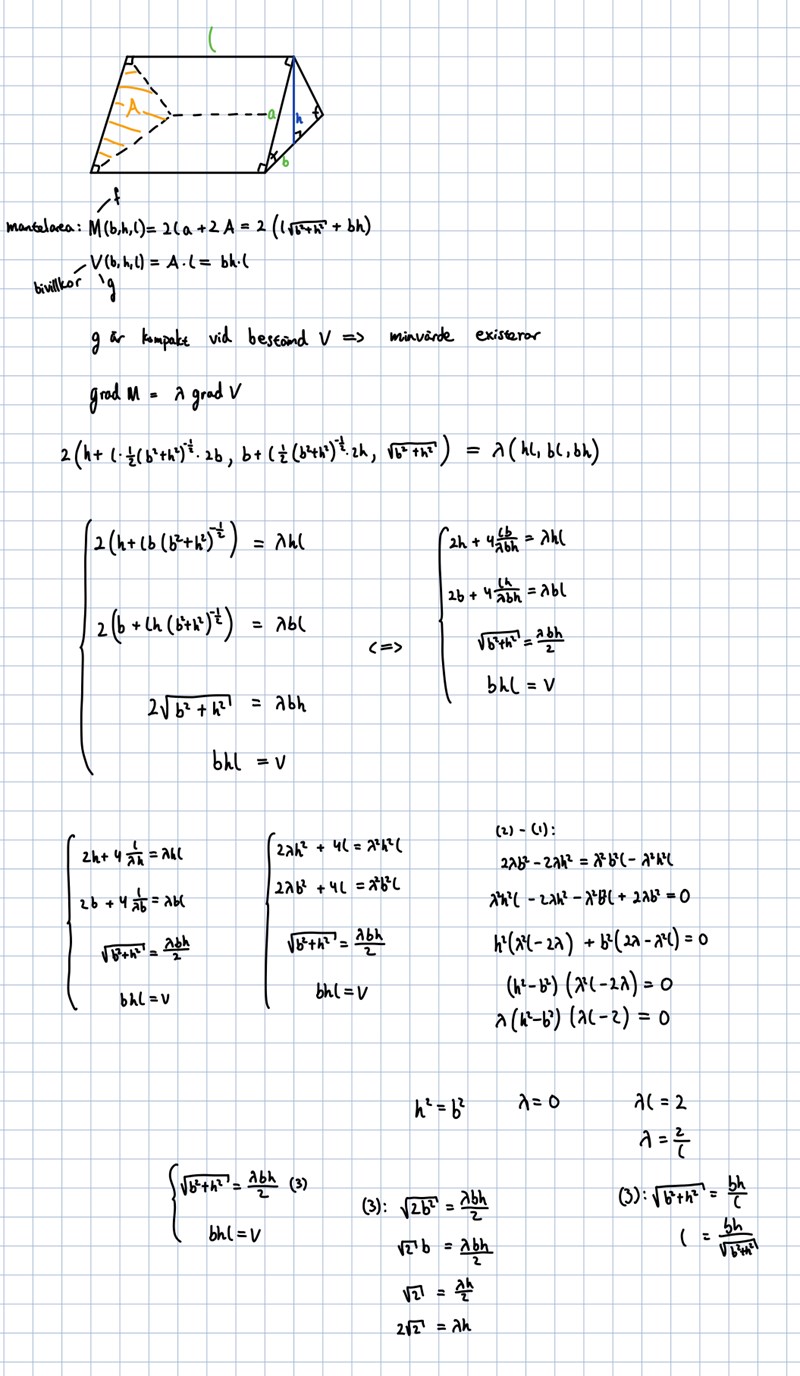 l
A
a
h
b
f
mantelarea: M(b,h,l) = 2la + 2A = 2(l√(b²+h²) + bh)
V(b,h,l) = A·l = bh·l
bivillkor g
g är kompakt vid bestämd V => minvärde existerar
grad M = λ grad V
2(h + l·½(b²+h²)^(-½)·2b, b + l½(b²+h²)^(-½)·2h, √(b²+h²)) = λ(hl, bl, bh)
2(h + lb(b²+h²)^(-½)) = λhl
2(b + lh(b²+h²)^(-½)) = λbl
2√(b²+h²) = λbh
bhl = V
<=>
2h + 4 lb/λbh = λhl
2b + 4 lh/λbh = λbl
√(b²+h²) = λbh/2
bhl = V
2h + 4 l/λh = λhl
2b + 4 l/λb = λbl
√(b²+h²) = λbh/2
bhl = V
2λh² + 4l = λ²h²l
2λb² + 4l = λ²b²l
√(b²+h²) = λbh/2
bhl = V
(2) - (1):
2λb² - 2λh² = λ²b²l - λ²h²l
λ²h²l - 2λh² - λ²b²l + 2λb² = 0
h²(λ²l - 2λ) + b²(2λ - λ²l) = 0
(h² - b²)(λ²l - 2λ) = 0
λ(h² - b²)(λl - 2) = 0
h² = b²
λ = 0
λl = 2
λ = 2/l
√(b²+h²) = λbh/2 (3)
bhl = V
(3): √(2b²) = λbh/2
√2 b = λbh/2
√2 = λh/2
2√2 = λh
(3): √(b²+h²) = bh/l
l = bh/√(b²+h²)